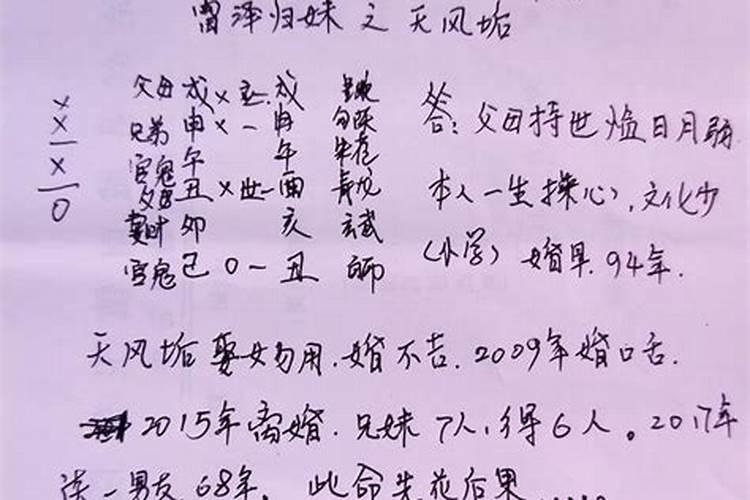 雷泽归妹之天风垢
父母戌×应戌 答:父母持世临日月弱
兄弟申×一申
官鬼午 午 朱
丑×世一酉 本人一生操心,文化少
卯 亥 玄武
官鬼巳0一丑 (小学)婚早.94年.
天风垢娶女勿用.婚不吉.2009年婚口舌.
2015年离婚.兄妹7人,得6人。2017年
一男友68年. 此命先花后果.....